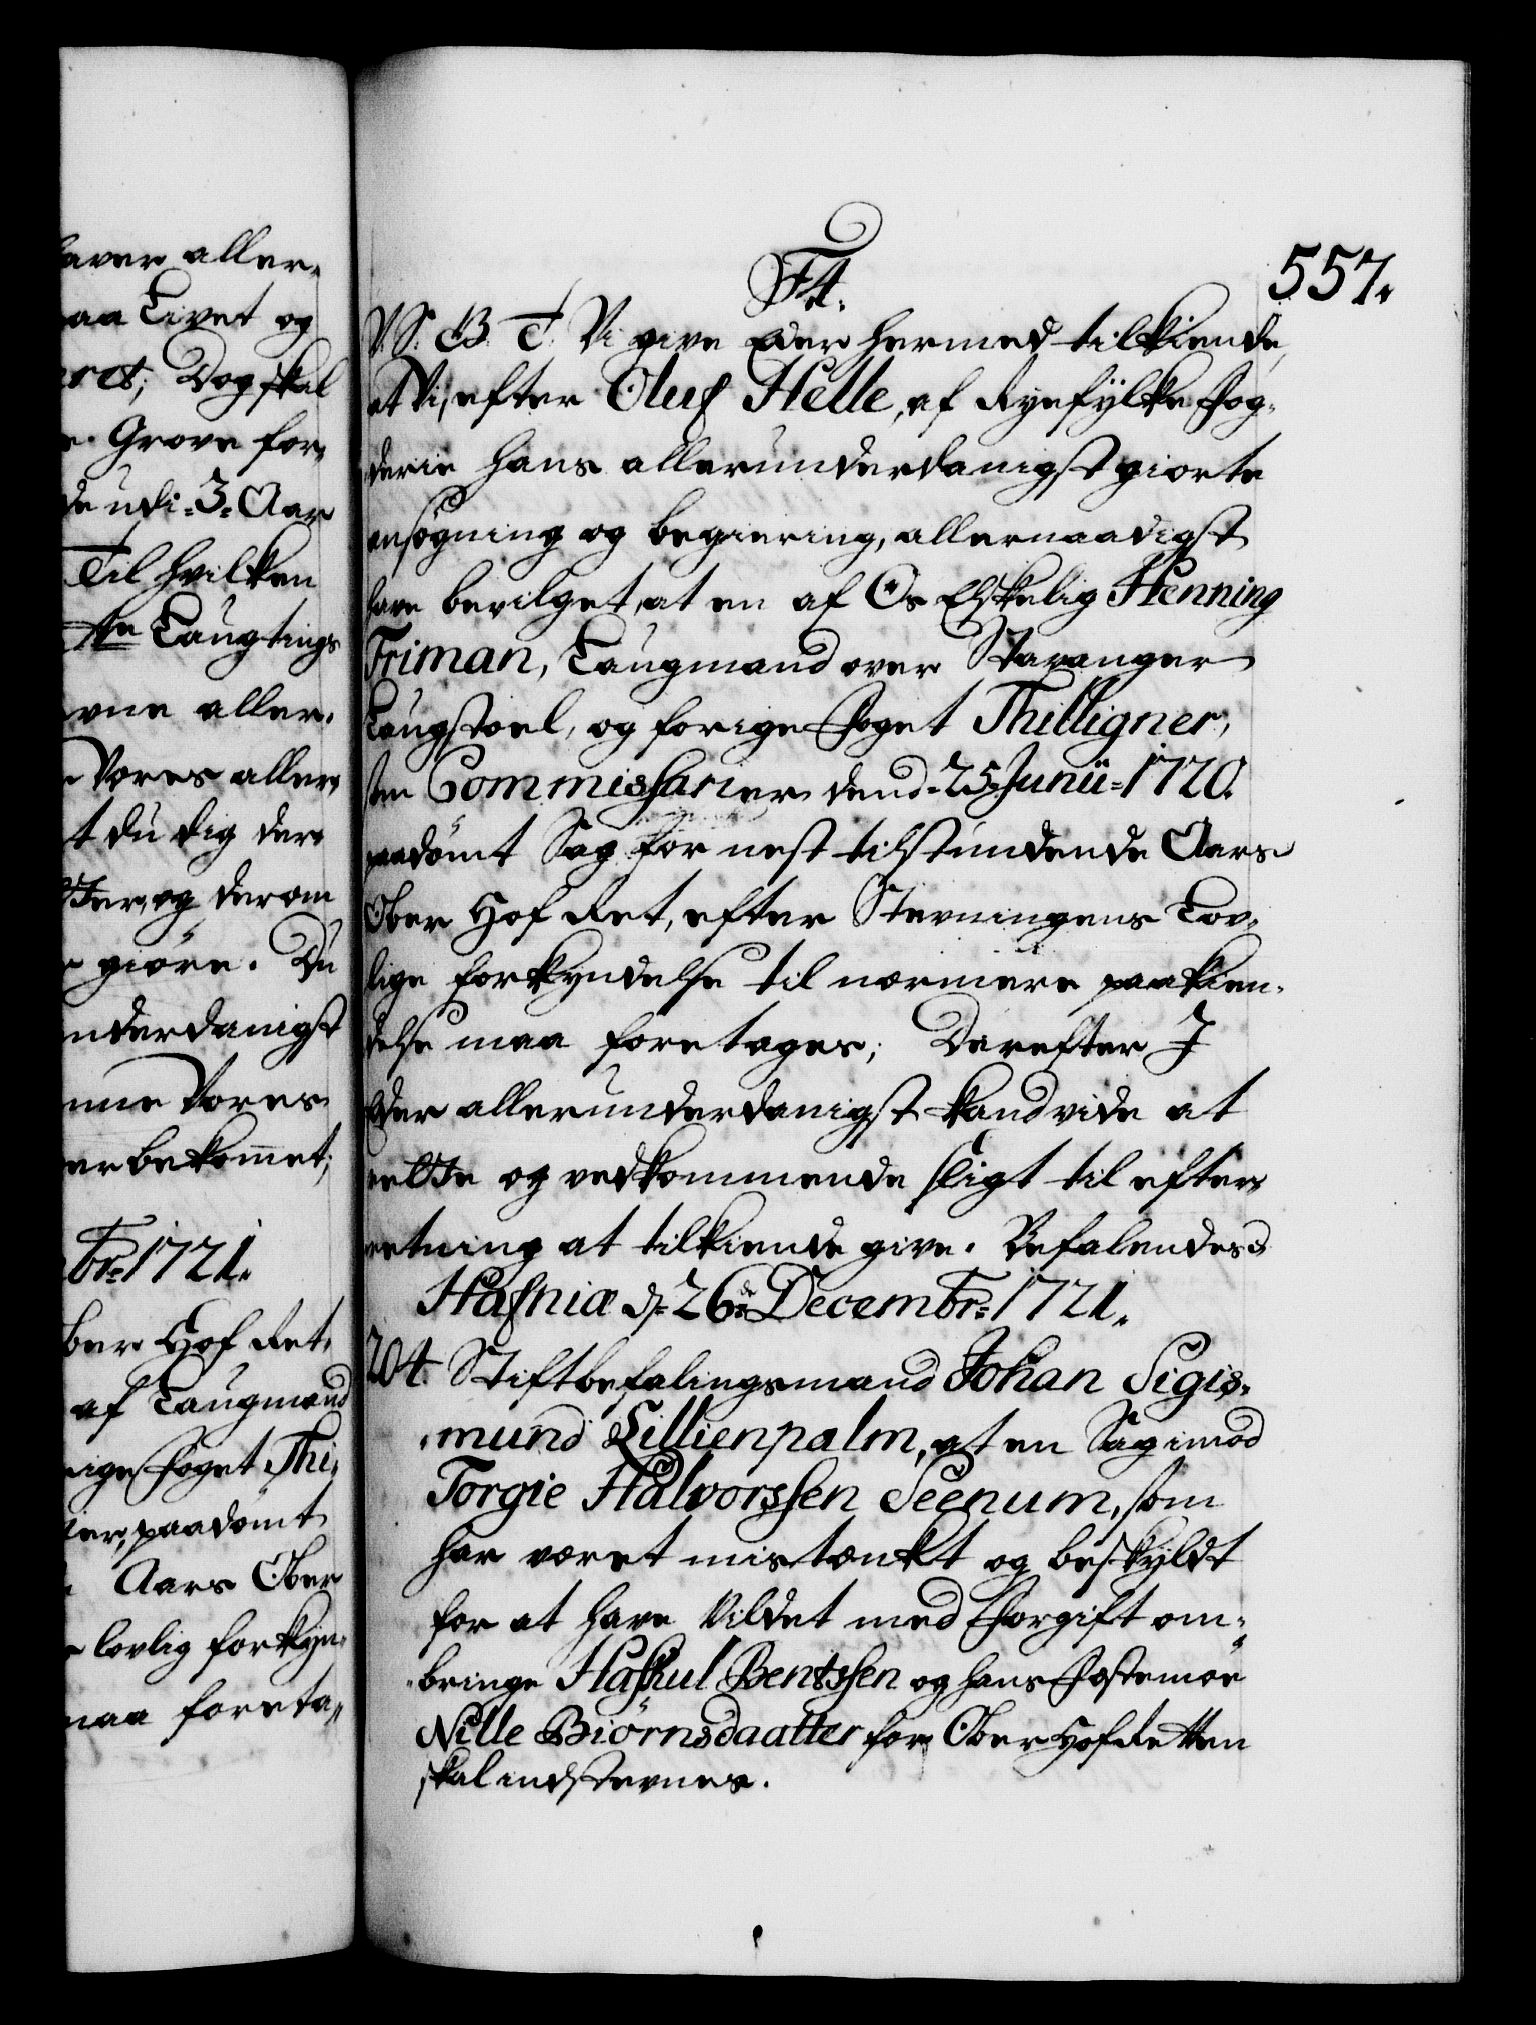 aver aller,
aa Livet og
ret; Dog skal
e. Grove for,
de udi =3= Aar
Til hvilken
tte Laugtings
evne aller,
Vores aller,
t du dig der
og derom
giöre. Du
nderdanigst
nne Vores
er bekommet;
br= 1721.
ber Hof Ret,
af Laugmand
ige Foget Thi,
ier, paadömt
Aars Ober
lovlig forkyn,
maa foreta,
557.
F4.
V. S. B. T. Vi give Eder hermed tilkiende,
at Vi, efter Oluf Helle, af Ryefylke Fog,
derie hans allerunderdanigst giorte
ansögning og begiering, allernaadigst
have bevilget, at en af Os Elskelig Henning
Friman, Laugmand over Stavanger
Laugstoel, og forige Foget Thilligner,
som Commissarier dend =25 Junii= 1720.
paadömt Sag for nest tilstundende Aars
Ober Hof Ret, efter Stevningens Lov,
lige forkyndelse til nærmere paakien,
delse maa foretages; Derefter I
Eder allerunderdanigst kand vide at
rette og vedkommende sligt til efter,
retning at tilkiende give. Befalendes
Hafniæ d= 26de Decembr= 1721.
204. Stiftbefalingsmand Johan Sigis,
mund Lillienpalm, at en Sag imod
Torgie Halvorssen Seenum, som
har været mistænkt og beskyldt
for at have Vildet med Forgift om,
bringe Hafkul Bentssen og hans Fostemöe
Nille Biörnsdaatter for Ober Hof Retten
skal indstevnes.